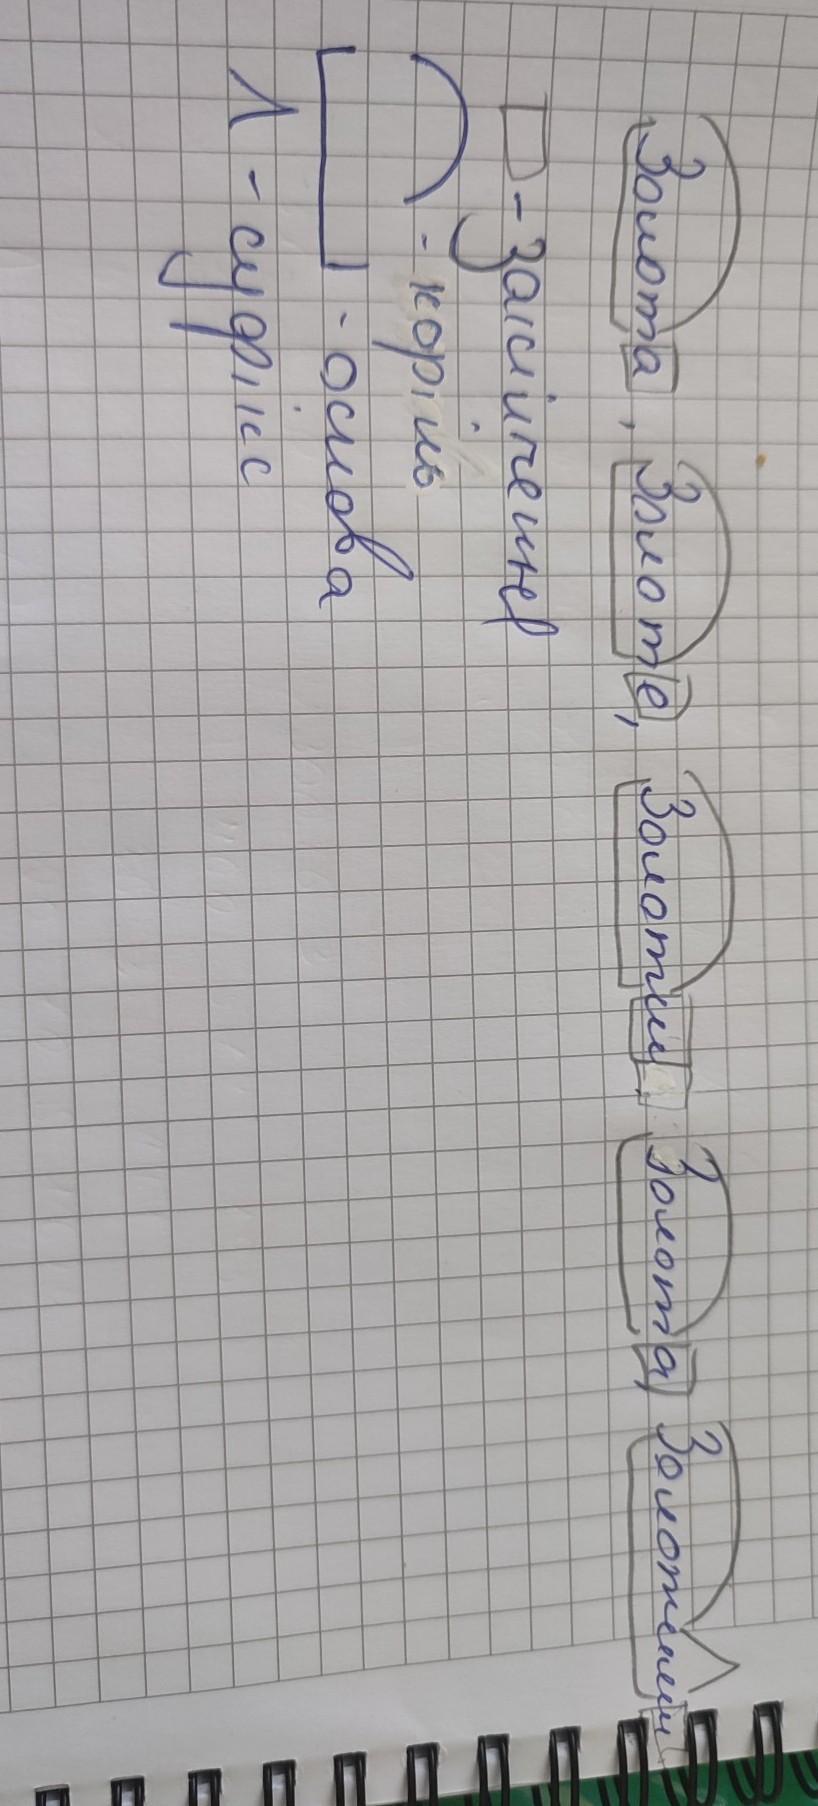 Золота, Золоте, Золоти, Золота, Золотими
- Закінчення
- корінь
- основа
- суфікс